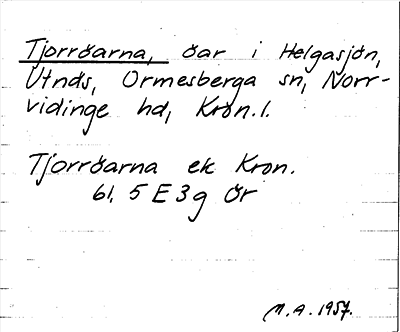 Tjorröarna, öar i Helgasjön,
Utnäs, Ormesberga sn, Norr-
vidinge hd, Kron. l.
Tjorröarna ek Kron.
61, 5 E 3g ÖR
M.A. 1957.